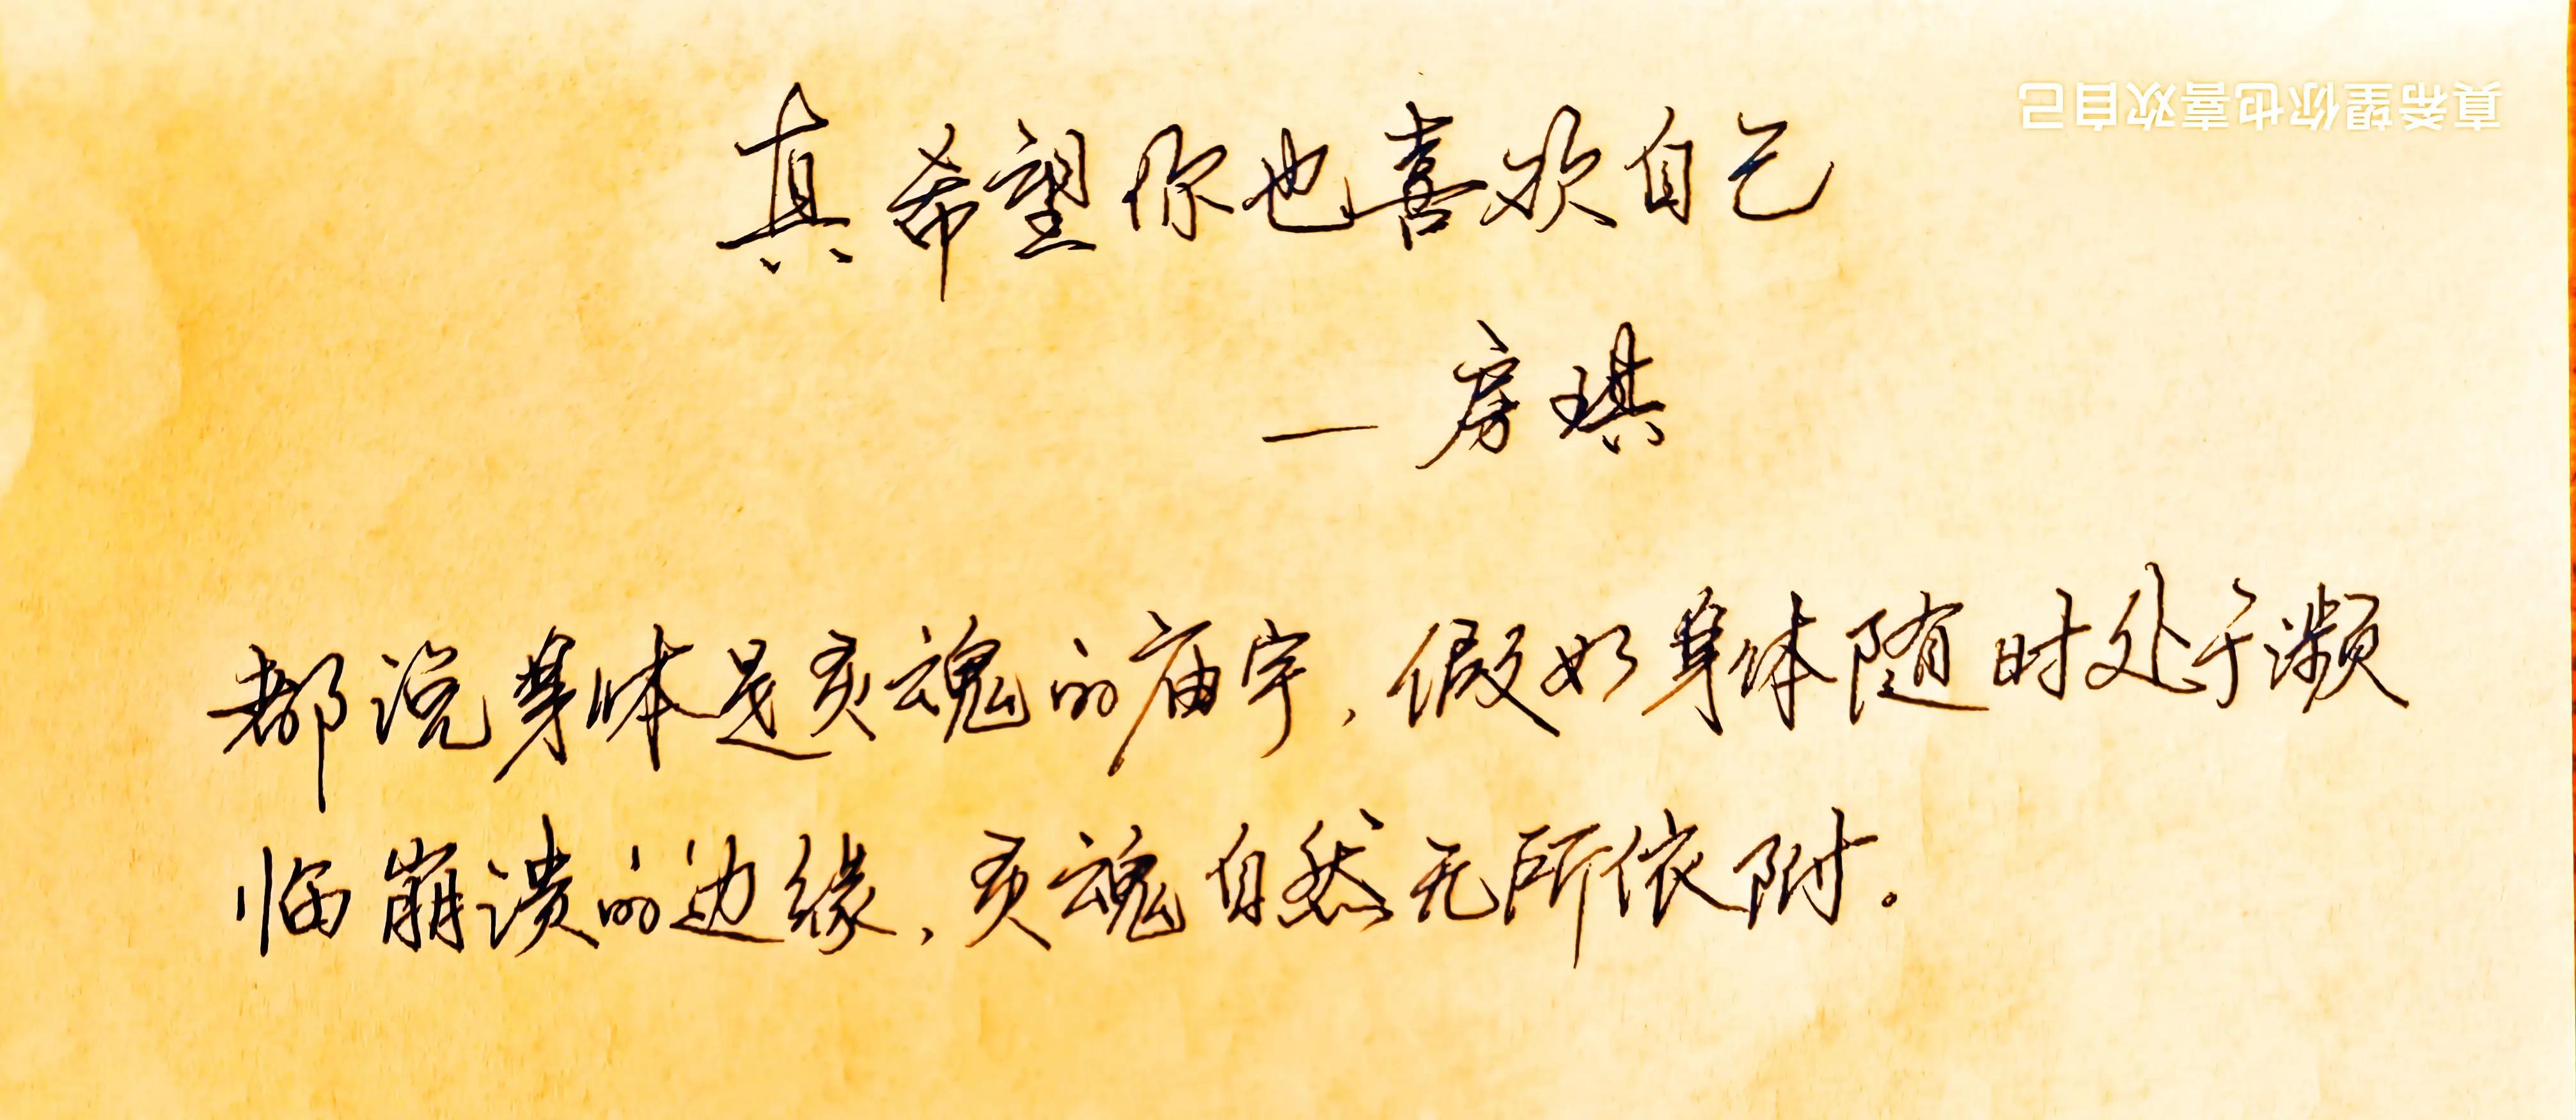 真希望你也喜欢自己
真希望你也喜欢自己
— 房琪
都说身体是灵魂的庙宇，假如身体随时处于濒
临崩溃的边缘，灵魂自然无所依附。